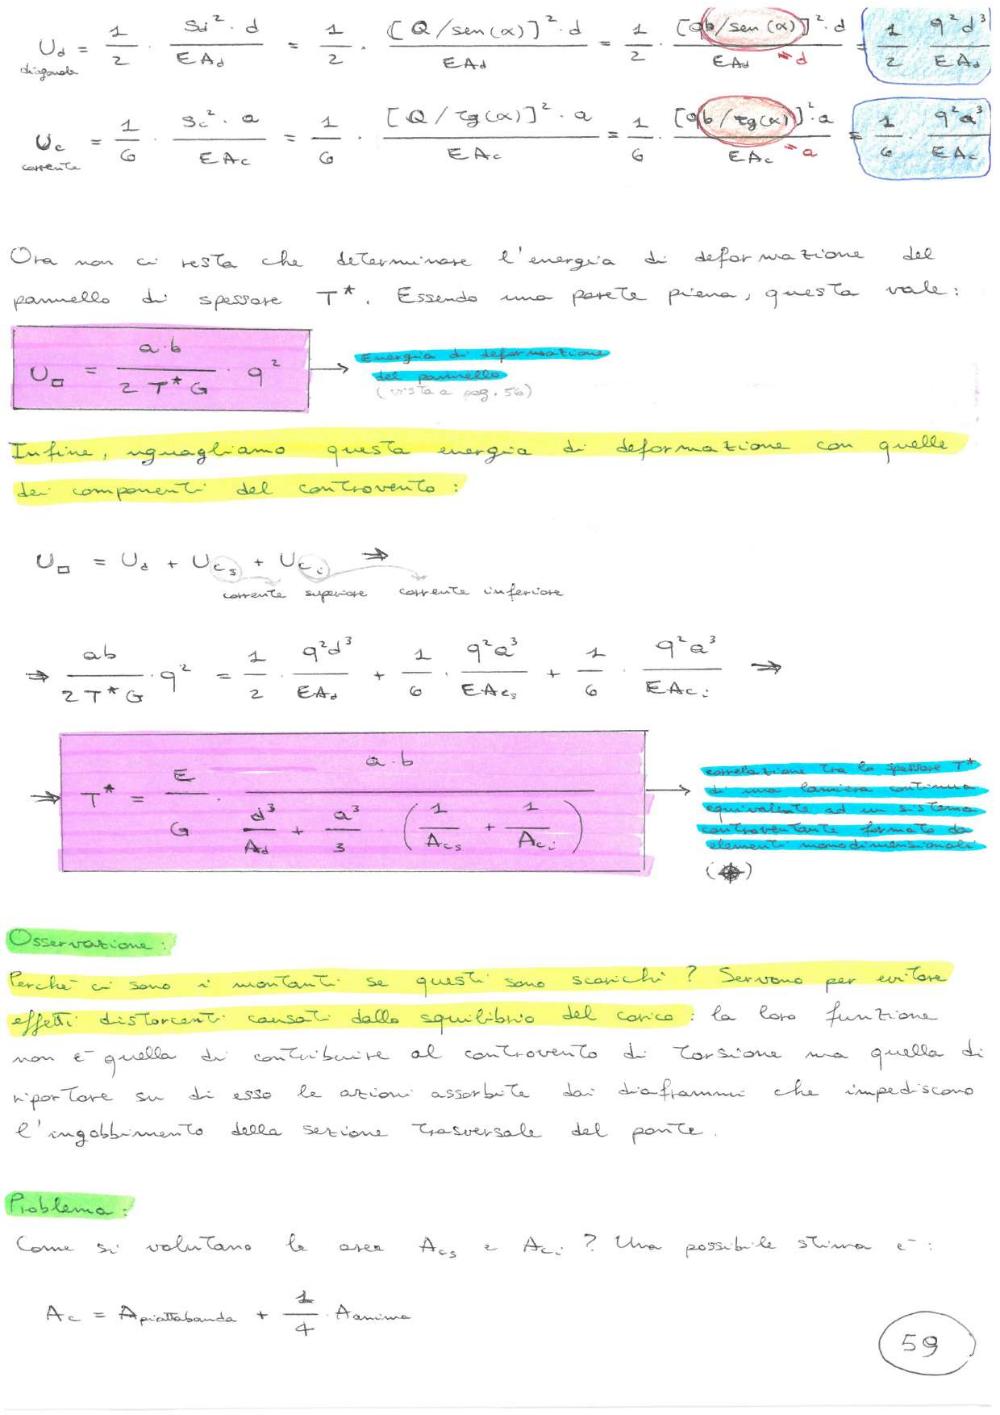 U_d = 1/2 · S_d² · d / EA_d = 1/2 · [Q/sen(α)]² · d / EA_d = 1/2 · [qb/sen(α)]² · d / EA_d = 1/2 q²d³ / EA_d
diagonale = d
U_c = 1/6 · S_c² · a / EA_c = 1/6 · [Q/tg(α)]² · a / EA_c = 1/6 · [qb/tg(α)]² · a / EA_c = 1/6 q²a³ / EA_c
corrente = a
Ora non ci resta che determinare l'energia di deformazione del
pannello di spessore T*. Essendo una parete piena, questa vale:
U_□ = a·b / 2T*G · q² → Energia di deformazione
del pannello
(vista a pag. 56)
Infine, uguagliamo questa energia di deformazione con quelle
dei componenti del controvento:
U_□ = U_d + U_cs + U_ci ⇒
corrente superiore corrente inferiore
⇒ ab / 2T*G · q² = 1/2 · q²d³ / EA_d + 1/6 · q²a³ / EA_cs + 1/6 · q²a³ / EA_ci ⇒
⇒ T* = E/G · a·b / d³/A_d + a³/3 · (1/A_cs + 1/A_ci) →
correlazione tra lo spessore T*
di una lamiera continua
equivalente ad un sistema
controventante formato da
elementi monodimensionali
Osservazione:
Perché ci sono i montanti se questi sono scarichi? Servono per evitare
effetti distorcenti causati dallo squilibrio del carico: la loro funzione
non è quella di contribuire al controvento di torsione ma quella di
riportare su di esso le azioni assorbite dai diaframmi che impediscono
l'ingobbimento della sezione trasversale del ponte.
Problema:
Come si valutano le aree A_cs e A_ci? Una possibile stima è:
A_c = A_piattabanda + 1/4 A_anima
59